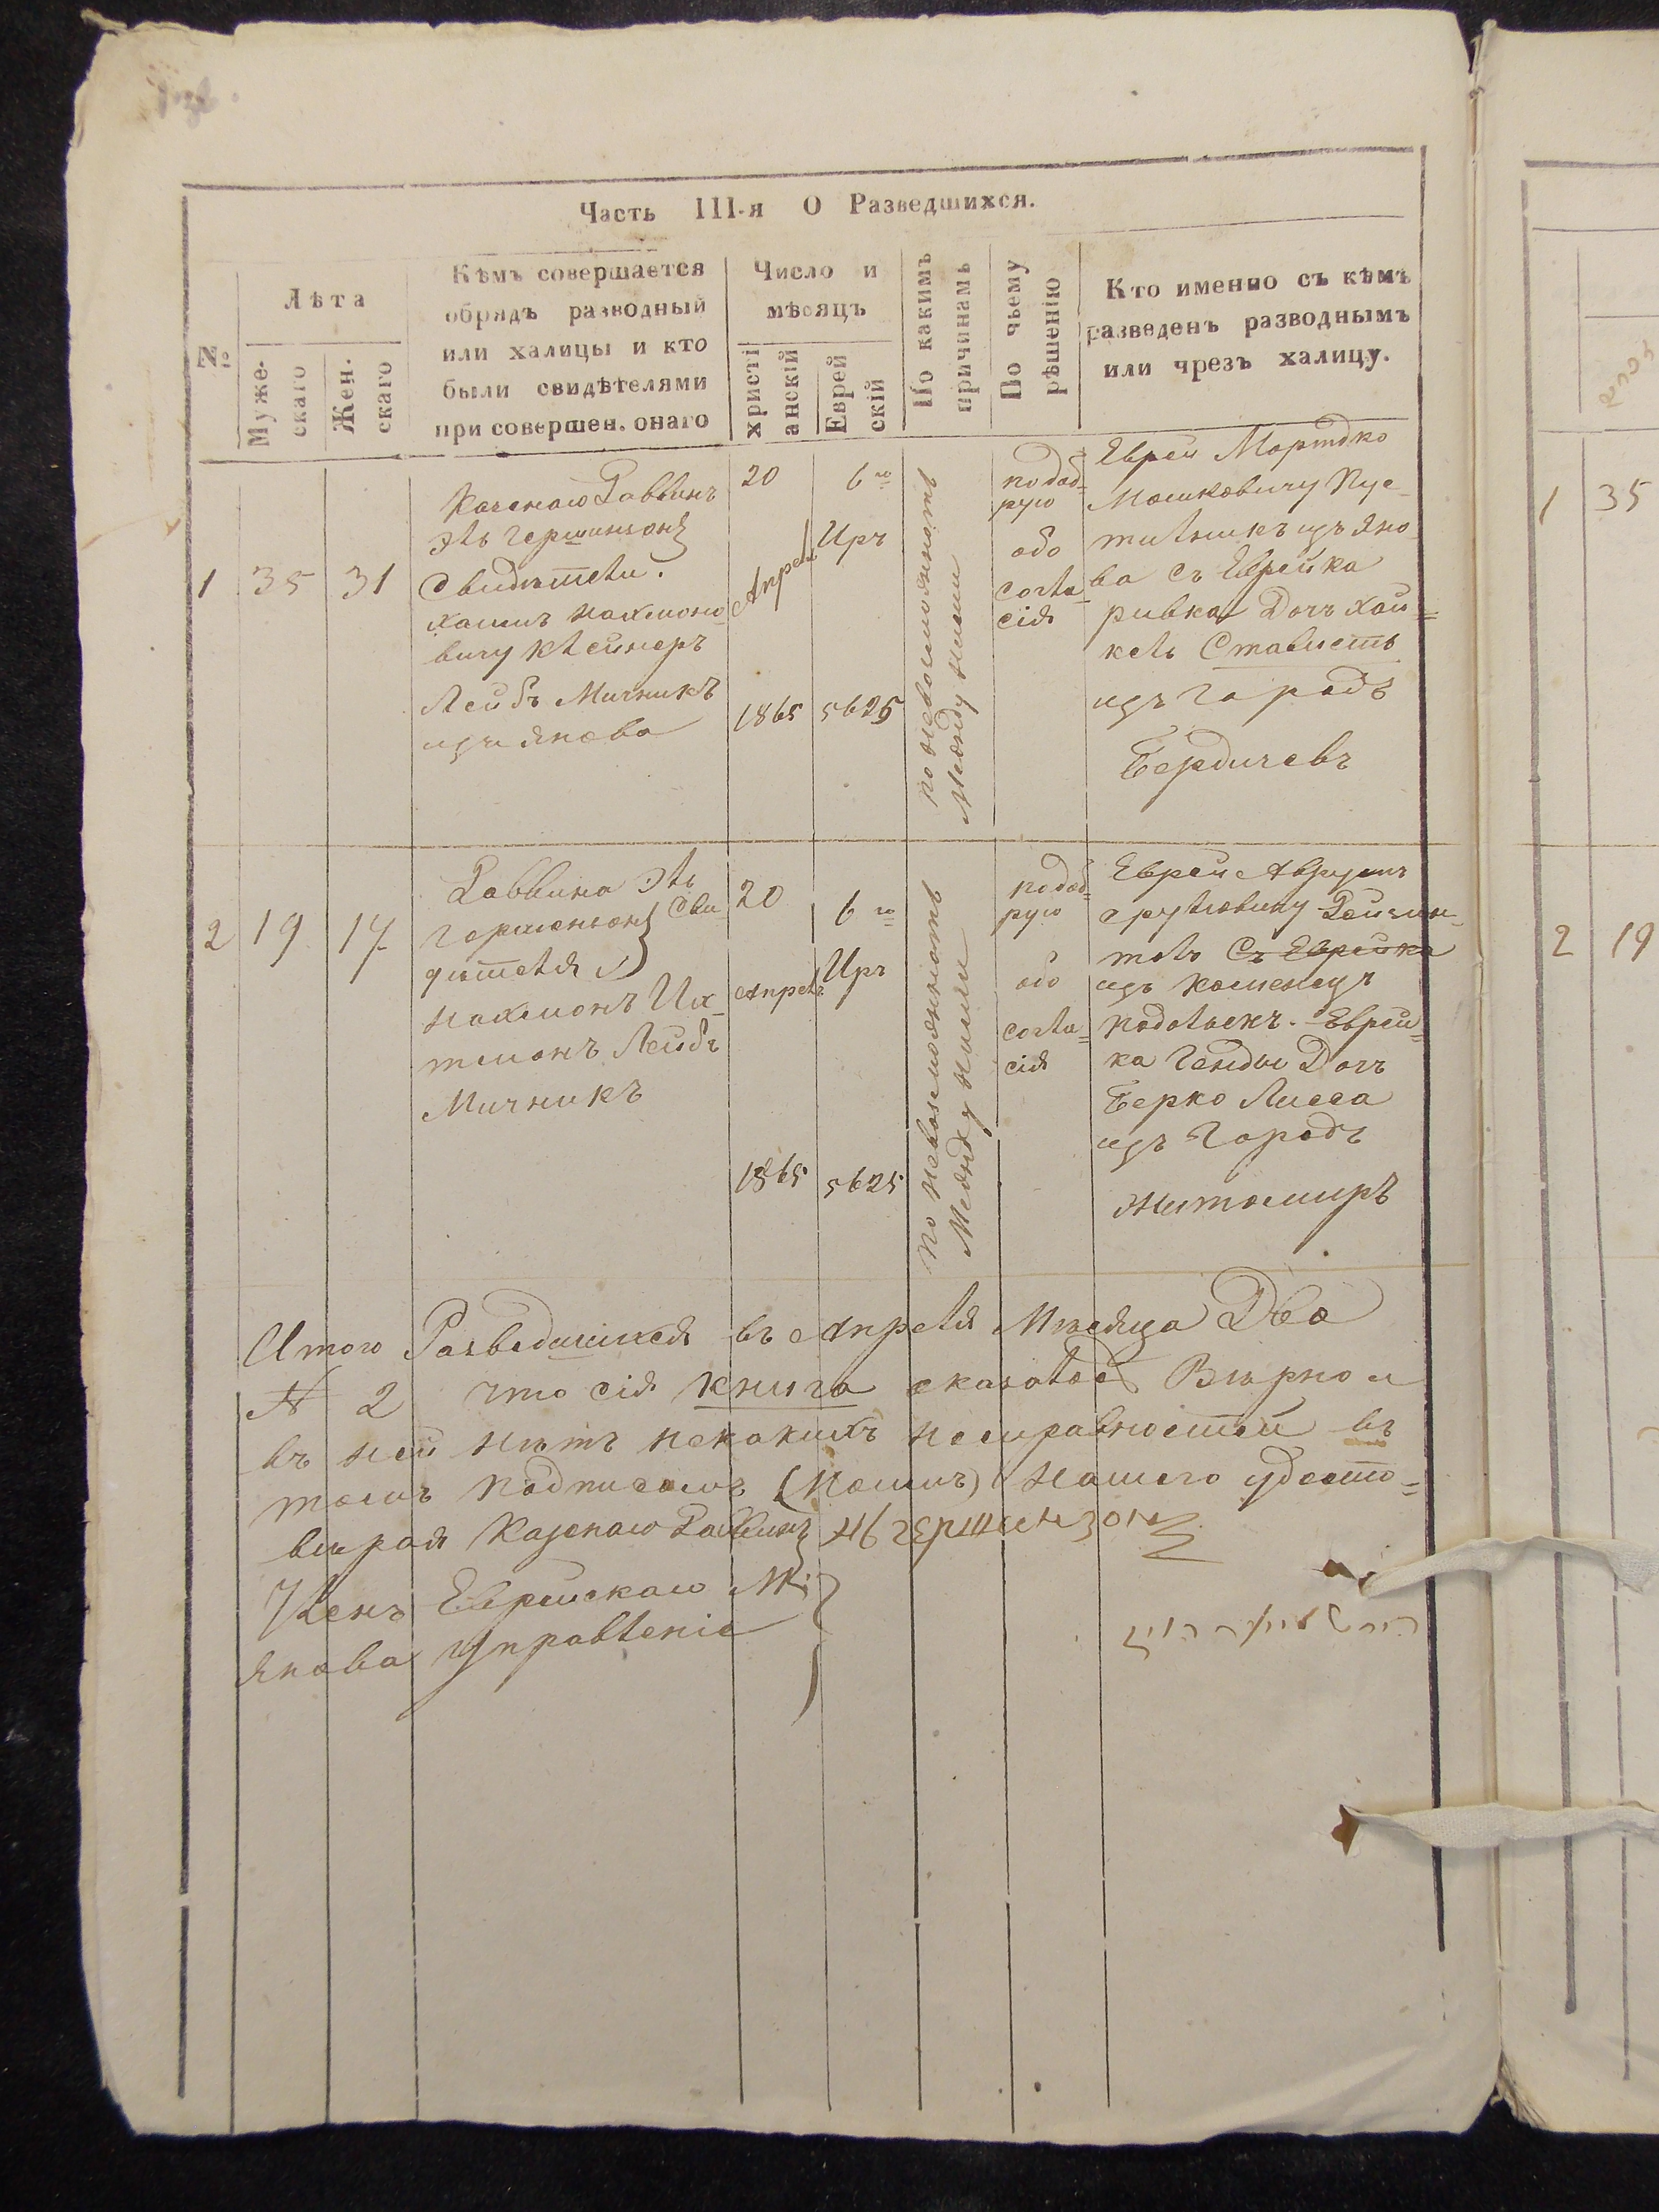 Часть III-я О Разведшихся.
№
Лѣта
Муже-
скаго
Жен.
скаго
Кѣмъ совершается
обрядъ разводный
или халицы и кто
были свидѣтелями
при совершен. онаго
Число и
мѣсяцъ
христі
анскій
Еврей
скій
По какимъ
причинамъ
По чьему
рѣшенію
Кто именно съ кѣмъ
разведенъ разводнымъ
или чрезъ халицу.
1
35
31
Казеного Раввинъ
Эль Гершинзонъ
Свидѣтели.
Хаимъ Нахмоно
вичу Клейнеръ
Лейбъ Мичникъ
изъ Янова
20
Апрель
1865
6го
Иръ
5625
по невозможность
Между ними
по доб-
рую
обо
согла-
сія
Еврей Мортко
Мошковичу Пус-
тильникъ изъ Яно-
ва съ Еврейка
Ривка Дочъ Хай-
кель Ставистъ
изъ Городъ
Бердичевъ
2
19
17
Раввина Эль
Гершензонъ Сви
дѣтеля
Нахмонъ Их
тманъ Лейбъ
Мичникъ
20
Апрель
1865
6го
Иръ
5625
по невозможность
Между ними
по доб-
рую
обо
согла-
сія
Еврей Аврумъ
Срулювичу
съ Еврейка
изъ Каменецъ
Подольскъ. Еврей-
ка Генды Дочъ
Берко Лисса
изъ Городъ
Житомиръ
Итого Разведшихся въ Апреля Мѣсяца Два
№ 2 что сія книга оказалось Вѣрно и
въ ней нѣтъ некакихъ неисправностей въ
томъ подписомъ нашего удосто-
вѣрая Казенаго Раввинъ Гершензонъ
Членъ Еврейскаго М.
Янова Управленіе
1
35
2
19